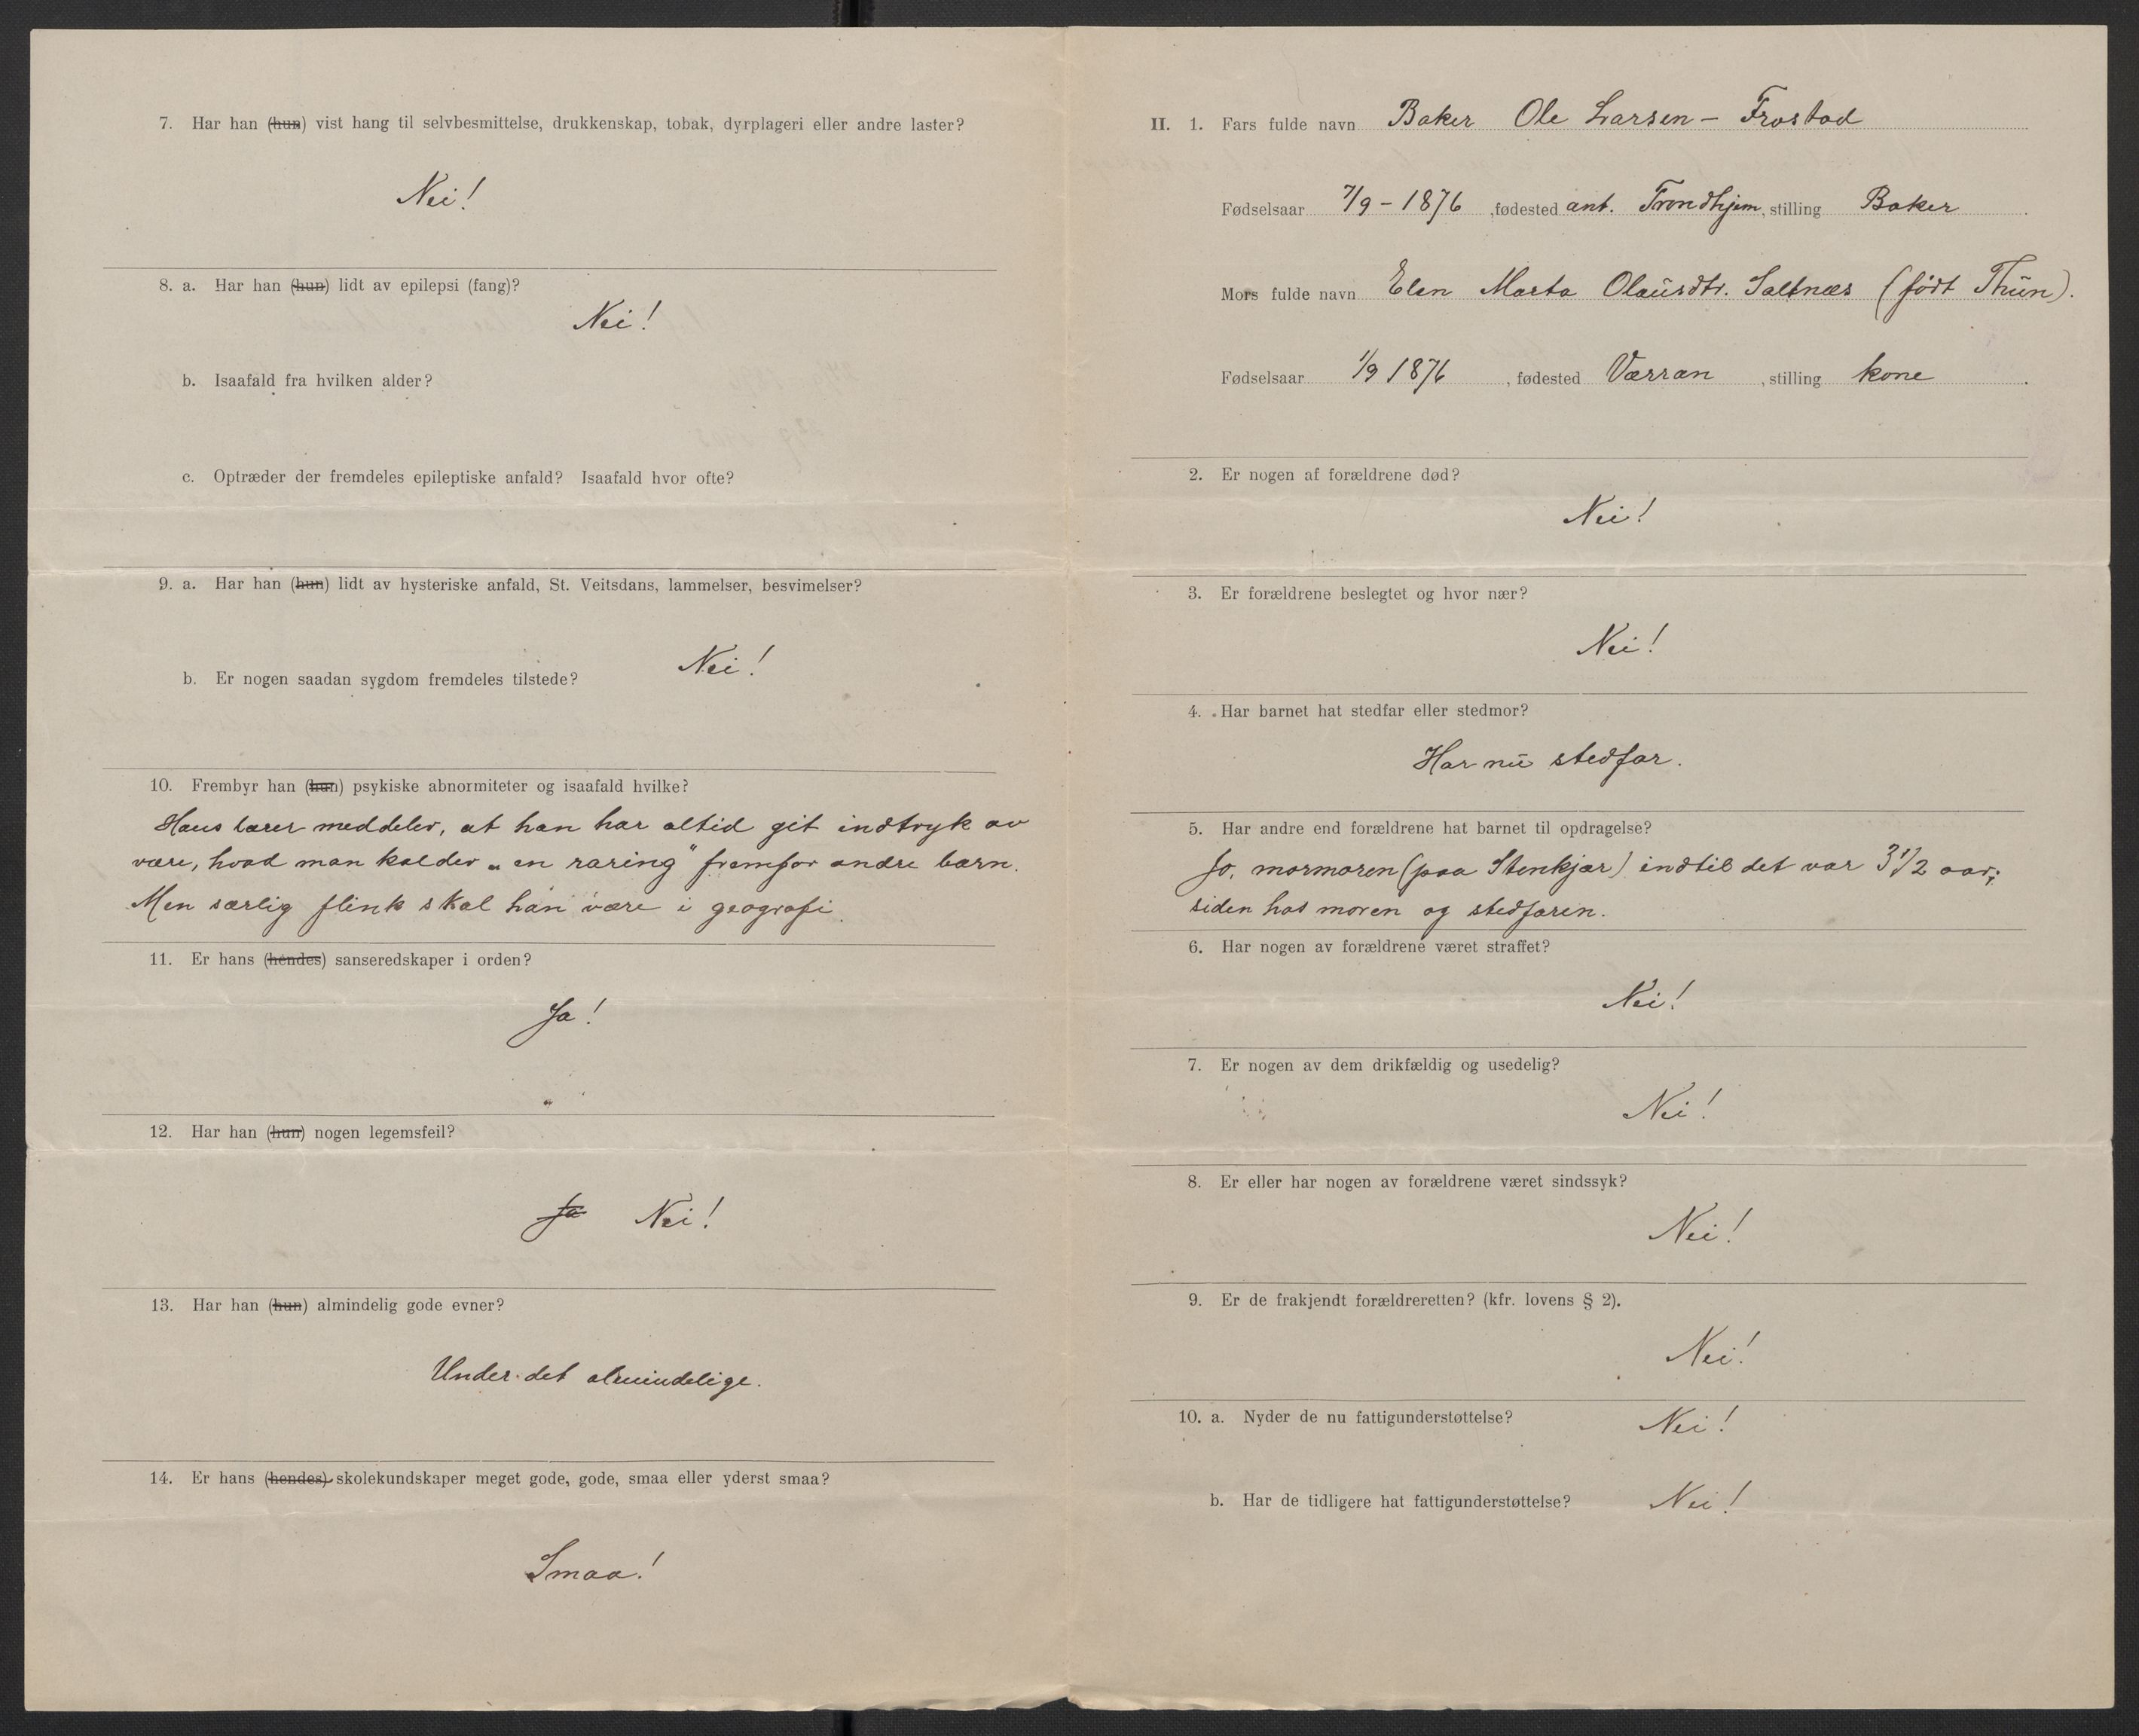 7. Har han (hun) vist hang til selvbesmittelse, drukkenskap, tobak, dyrplageri eller andre laster?
Nei!
8. a. Har han (hun) lidt av epilepsi (fang)?
Nei!
b. Isaafald fra hvilken alder?
c. Optræder der fremdeles epileptiske anfald? Isaafald hvor ofte?
9. a. Har han (hun) lidt av hysteriske anfald, St. Veitsdans, lammelser, besvimelser?
Nei!
b. Er nogen saadan sygdom fremdeles tilstede?
10. Frembyr han (hun) psykiske abnormiteter og isaafald hvilke?
Hans lærer meddeler, at han har altid git indtryk av
være, hvad man kalder „en raring" fremfor andre barn.
Men særlig flink skal han være i geografi.
11. Er hans (hendes) sanseredskaper i orden?
Ja!
12. Har han (hun) nogen legemsfeil?
Ja Nei!
13. Har han (hun) almindelig gode evner?
Under det almindelige.
14. Er hans (hendes) skolekundskaper meget gode, gode, smaa eller yderst smaa?
Smaa!
II. 1. Fars fulde navn Baker Ole Larsen - Frostad
Fødselsaar 7/9 - 1876, fødested ant. Trondhjem, stilling Baker.
Mors fulde navn Elen Marta Olausdtr. Saltnæs (født Thun).
Fødselsaar 1/9 1876, fødested Værran, stilling kone.
2. Er nogen af forældrene død?
Nei!
3. Er forældrene beslegtet og hvor nær?
Nei!
4. Har barnet hat stedfar eller stedmor?
Har nu stedfar.
5. Har andre end forældrene hat barnet til opdragelse?
Ja, mormoren (paa Stenkjær) indtil det var 3 1/2 aar;
siden hos moren og stedfaren.
6. Har nogen av forældrene været straffet?
Nei!
7. Er nogen av dem drikfældig og usedelig?
Nei!
8. Er eller har nogen av forældrene været sindssyk?
Nei!
9. Er de frakjendt forældreretten? (kfr. lovens § 2).
Nei!
10. a. Nyder de nu fattigunderstøttelse? Nei!
b. Har de tidligere hat fattigunderstøttelse? Nei!